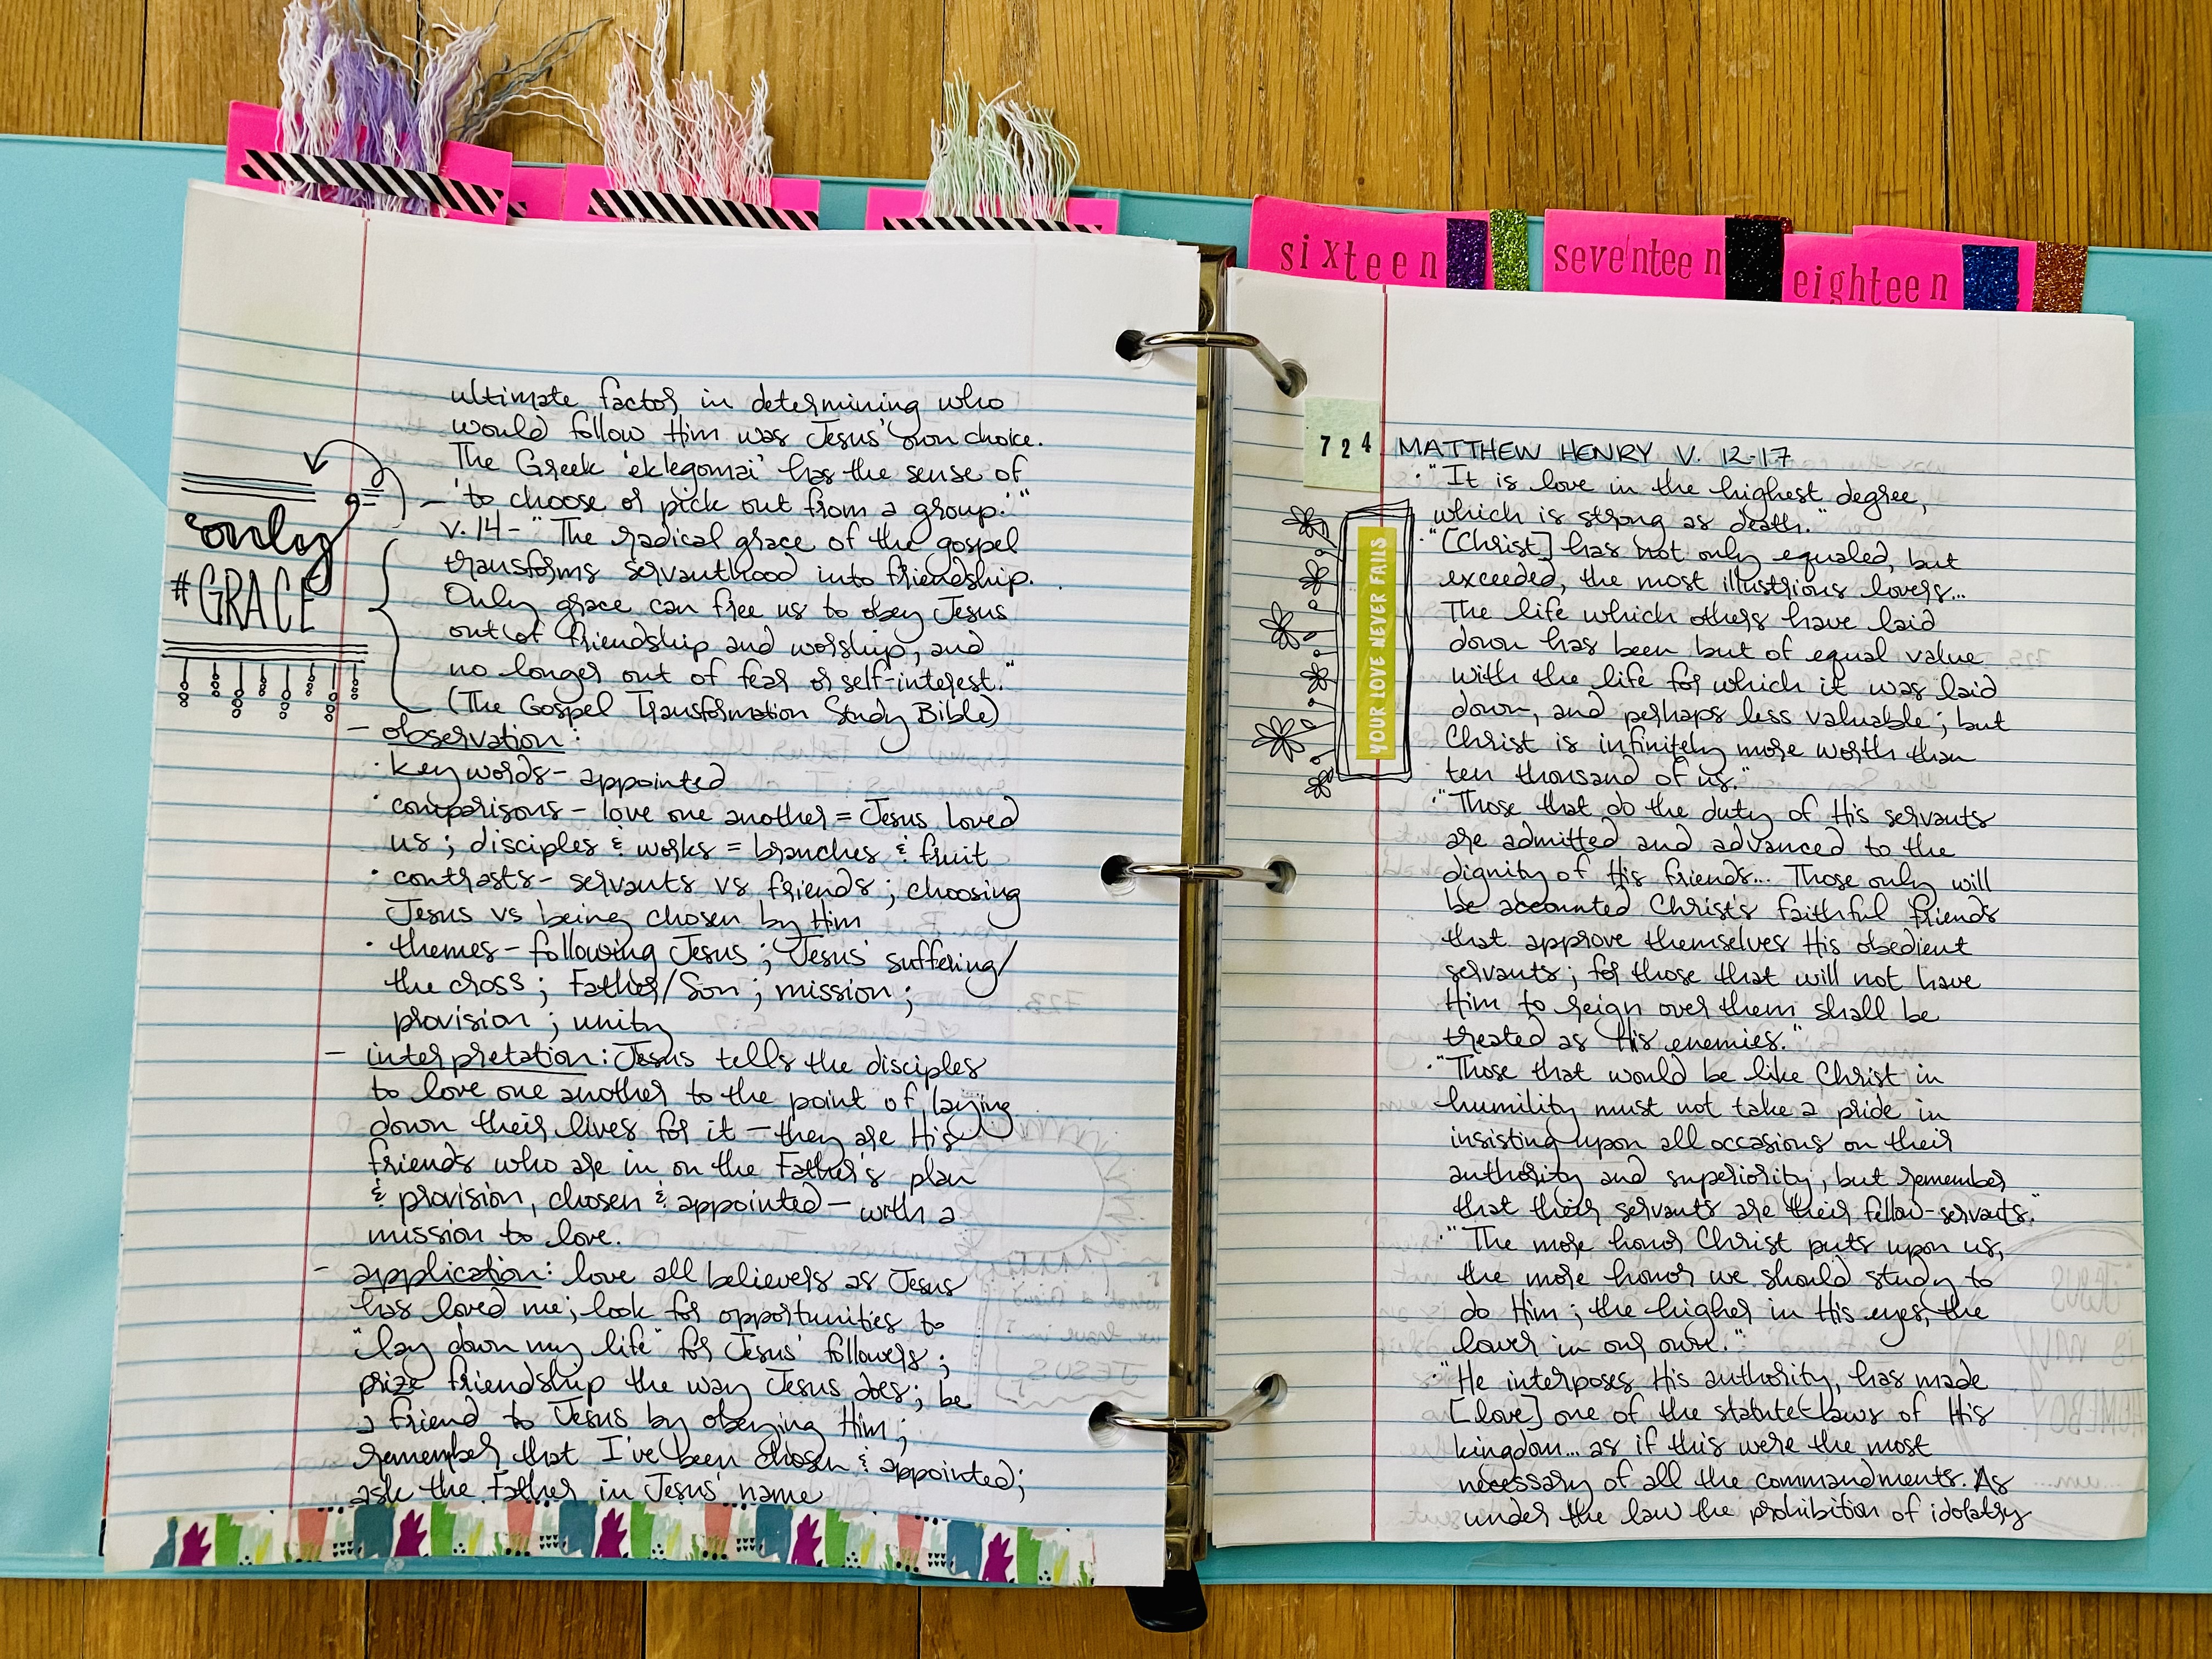 sixteen
seventeen
eighteen
ultimate factor in determining who
would follow Him was Jesus' own choice.
The Greek 'eklegomai' has the sense of
'to choose or pick out from a group.'"
v. 14- "The radical grace of the gospel
transforms servanthood into friendship.
Only grace can free us to obey Jesus
out of friendship and worship, and
no longer out of fear or self-interest."
(The Gospel Transformation Study Bible)
only
#GRACE
- observation:
· key words- appointed
· comparisons - love one another = Jesus loved
us; disciples & works = branches & fruit
· contrasts- servants vs friends; choosing
Jesus vs being chosen by Him
· themes- following Jesus; Jesus' suffering/
the cross; Father/Son; mission;
provision; unity
- interpretation: Jesus tells the disciples
to love one another to the point of laying
down their lives for it - they are His
friends who are in on the Father's plan
& provision, chosen & appointed - with a
mission to love.
- application: love all believers as Jesus
has loved me; look for opportunities to
"lay down my life" for Jesus' followers;
prize friendship the way Jesus does; be
a friend to Jesus by obeying Him;
remember that I've been chosen & appointed;
ask the Father in Jesus' name
724
MATTHEW HENRY V. 12-17
YOUR LOVE NEVER FAILS
· "It is love in the highest degree,
which is strong as death."
· "[Christ] has not only equaled, but
exceeded, the most illustrious lovers...
The life which others have laid
down has been but of equal value
with the life for which it was laid
down, and perhaps less valuable; but
Christ is infinitely more worth than
ten thousand of us."
· "Those that do the duty of His servants
are admitted and advanced to the
dignity of His friends... Those only will
be accounted Christ's faithful friends
that approve themselves His obedient
servants; for those that will not have
Him to reign over them shall be
treated as His enemies."
· "Those that would be like Christ in
humility must not take a pride in
insisting upon all occasions on their
authority and superiority, but remember
that their servants are their fellow-servants."
· "The more honor Christ puts upon us,
the more honor we should study to
do Him; the higher in His eyes, the
lower in our own."
· "He interposes His authority, has made
[love] one of the statute-laws of His
kingdom... as if this were the most
necessary of all the commandments. As
under the law the prohibition of idolatry